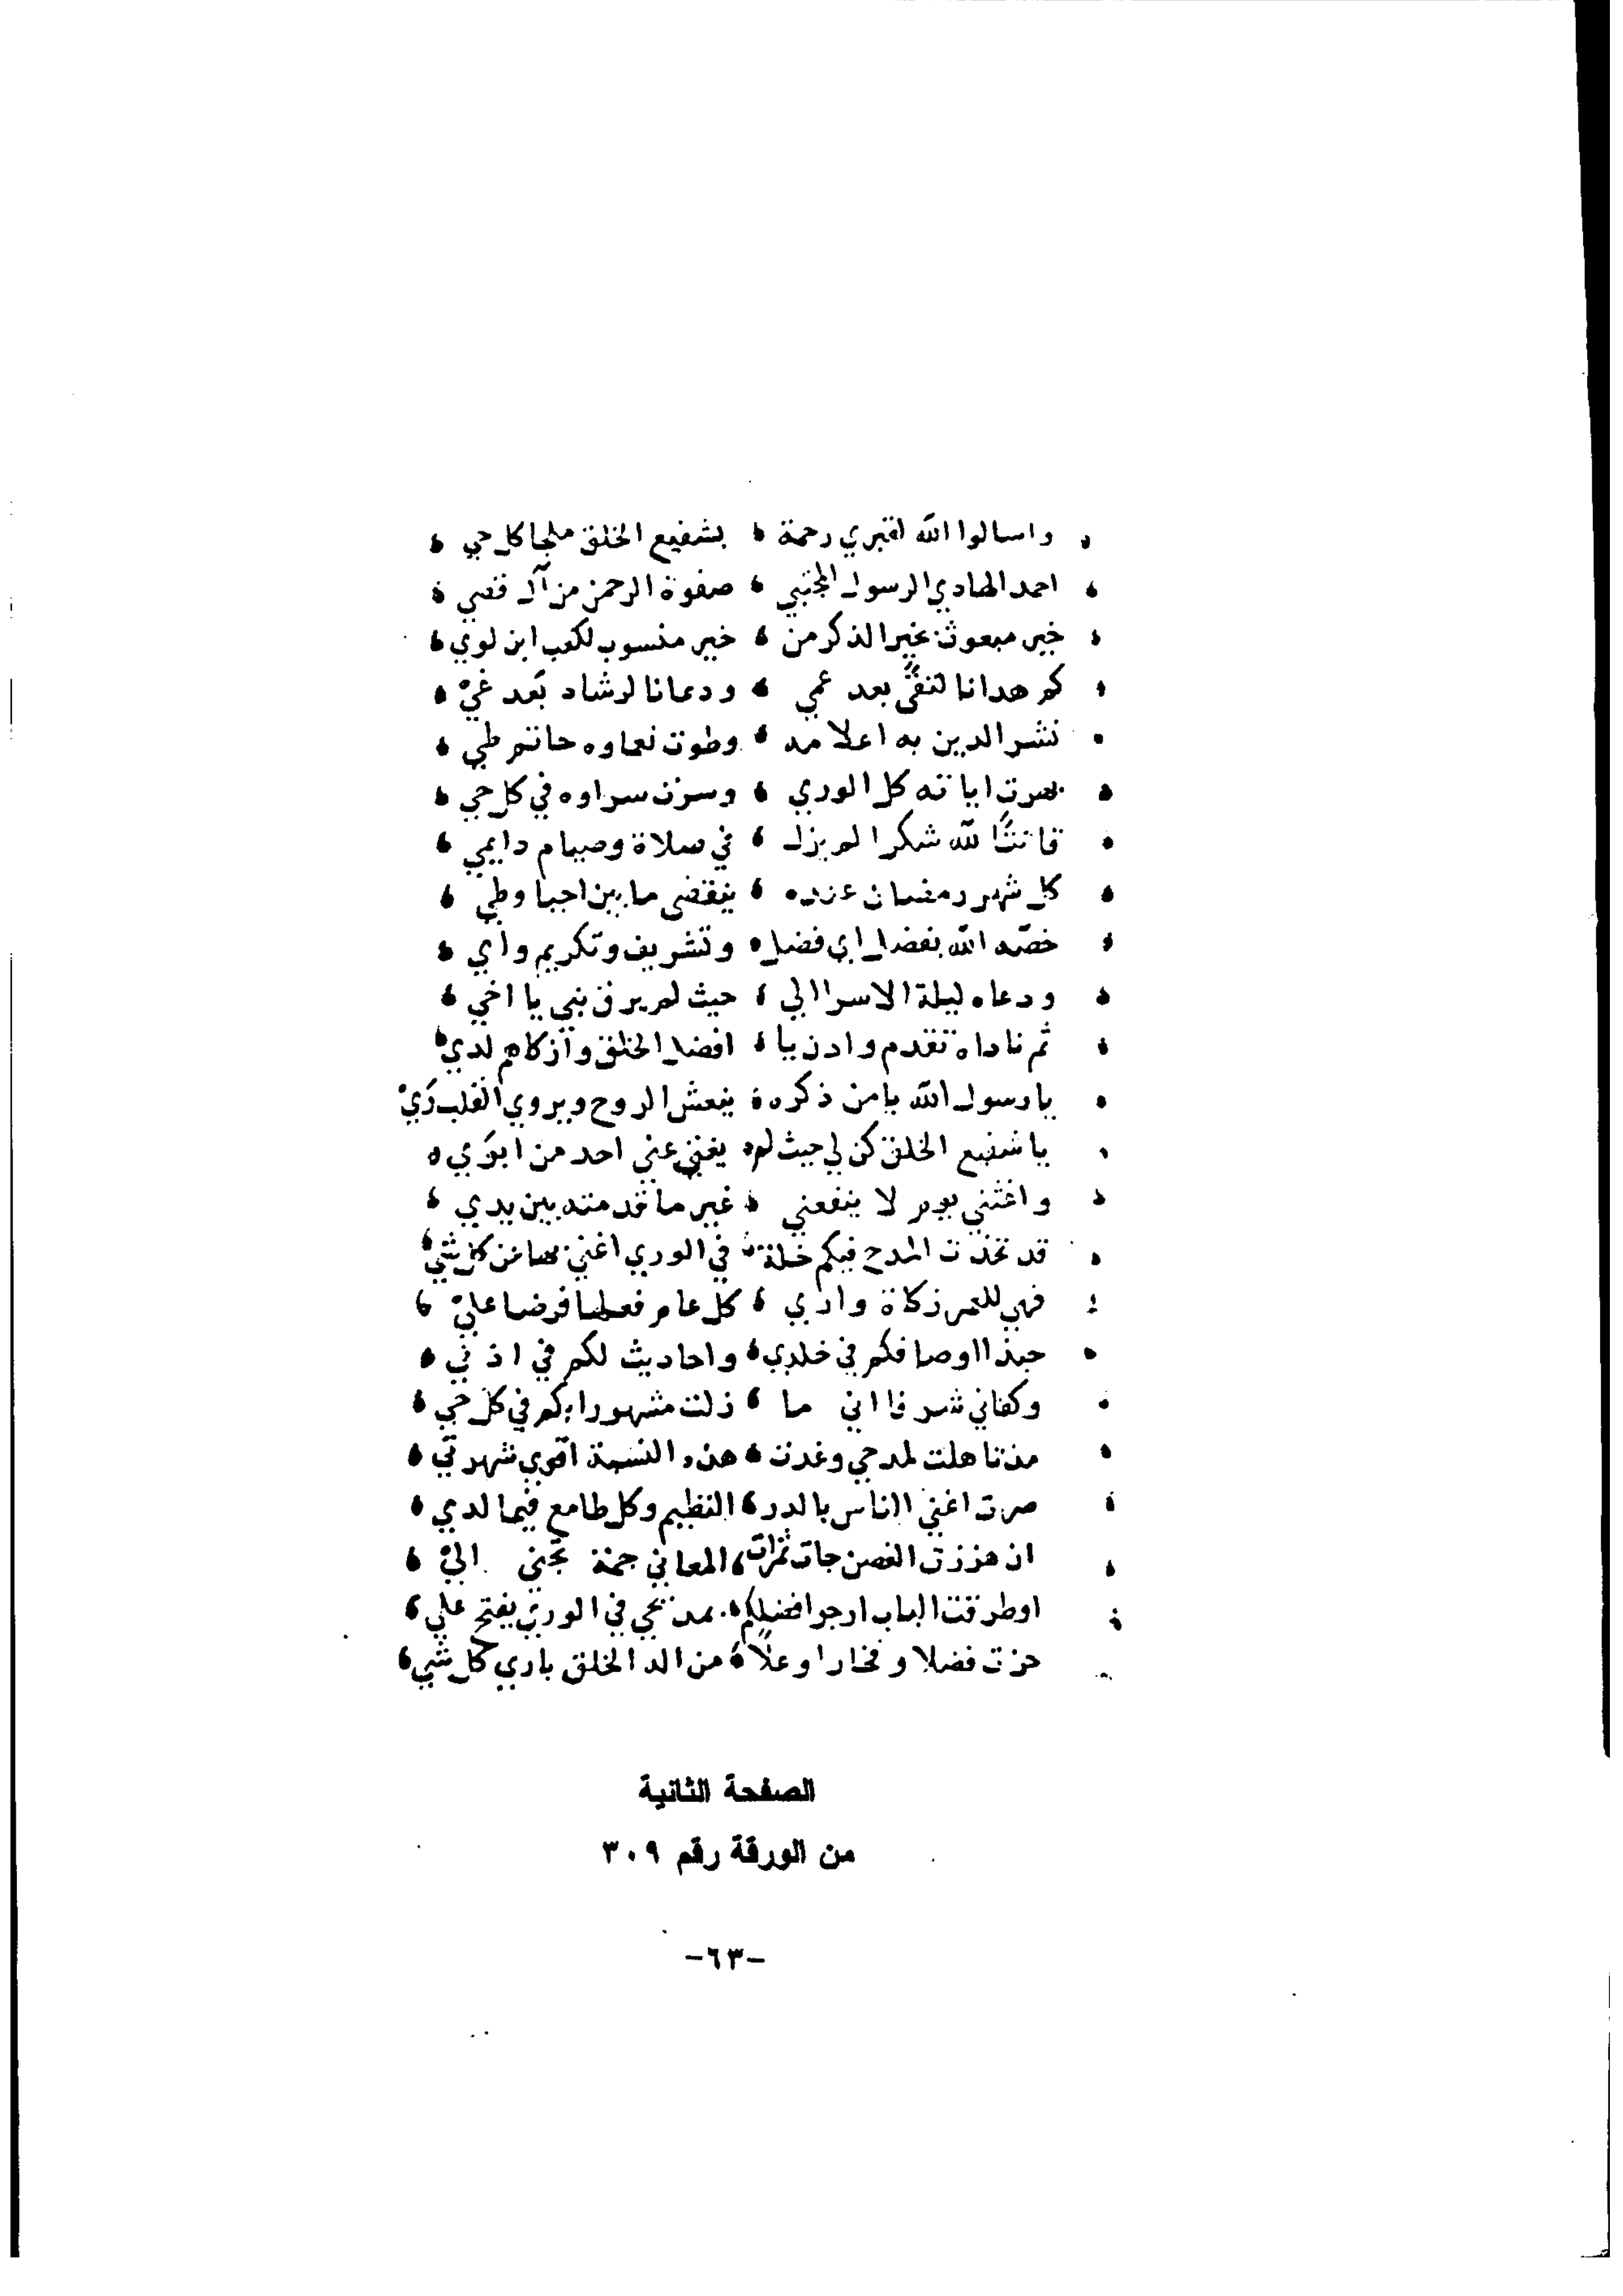 واسالوا الله لقبري رحمة بشفيع الخلق ملجا كل حي
احمد الهادي الرسول المجتبي صفوة الرحمن من آل قصي
خير مبعوث بخير الذكر من خير منسوب لكعب ابن لوي
كم هدانا لتقىً بعد عمي ودعانا لرشاد بَعد غيّ
نشر الدين به اعلامه وطوت نعماوه حاتم طي
بهرت اياته كل الوري وسرت سراوه في كل حي
قانتًا لله شكرا لم يزل في صلاة وصيام دايمي
كل شهر رمضان عنده ينقضي ما بين احيا وطي
خصّه الله بفضل اي فضل وتشريف وتكريم واي
ودعاه ليلة الاسرا الي حيث لم يرق نبي يا اخي
ثم ناداه تقدم وادن يا افضل الخلق وازكاهم لدي
يا رسول الله يا من ذكره ينعش الروح ويروي القلب رَيّ
يا شفيع الخلق كن لي حيث لم يغني عني احد من ابوَي
واغثني يوم لا ينفعني غير ما قدمته بين يدي
قد تخذت المدح فيكم خلة في الوري اغني بها عن كل شي
فهي للعمر زكاة واري كل عام فعلها فرضا عليّ
حبذا اوصافكم في خلدي واحاديث لكم في اذني
وكفاني شرفا اني ما زلت مشهورا بكم في كل حي
مذ تاهلت لمدحي وغدت هذه النسبة اقوي شهرتي
صرت اغني الناس بالدر النظيم وكل طامع فيما لدي
ان هززت الغصن جات ثمرات المعاني جمة تجني اليّ
او طرقت الباب ارجوا فضلكم بمديحي في الوري يفتح علي
حزت فضلا وفخارا وعلًا من اله الخلق باري كل شي
الصفحة الثانية
من الورقة رقم ٣٠٩
-٦٣-